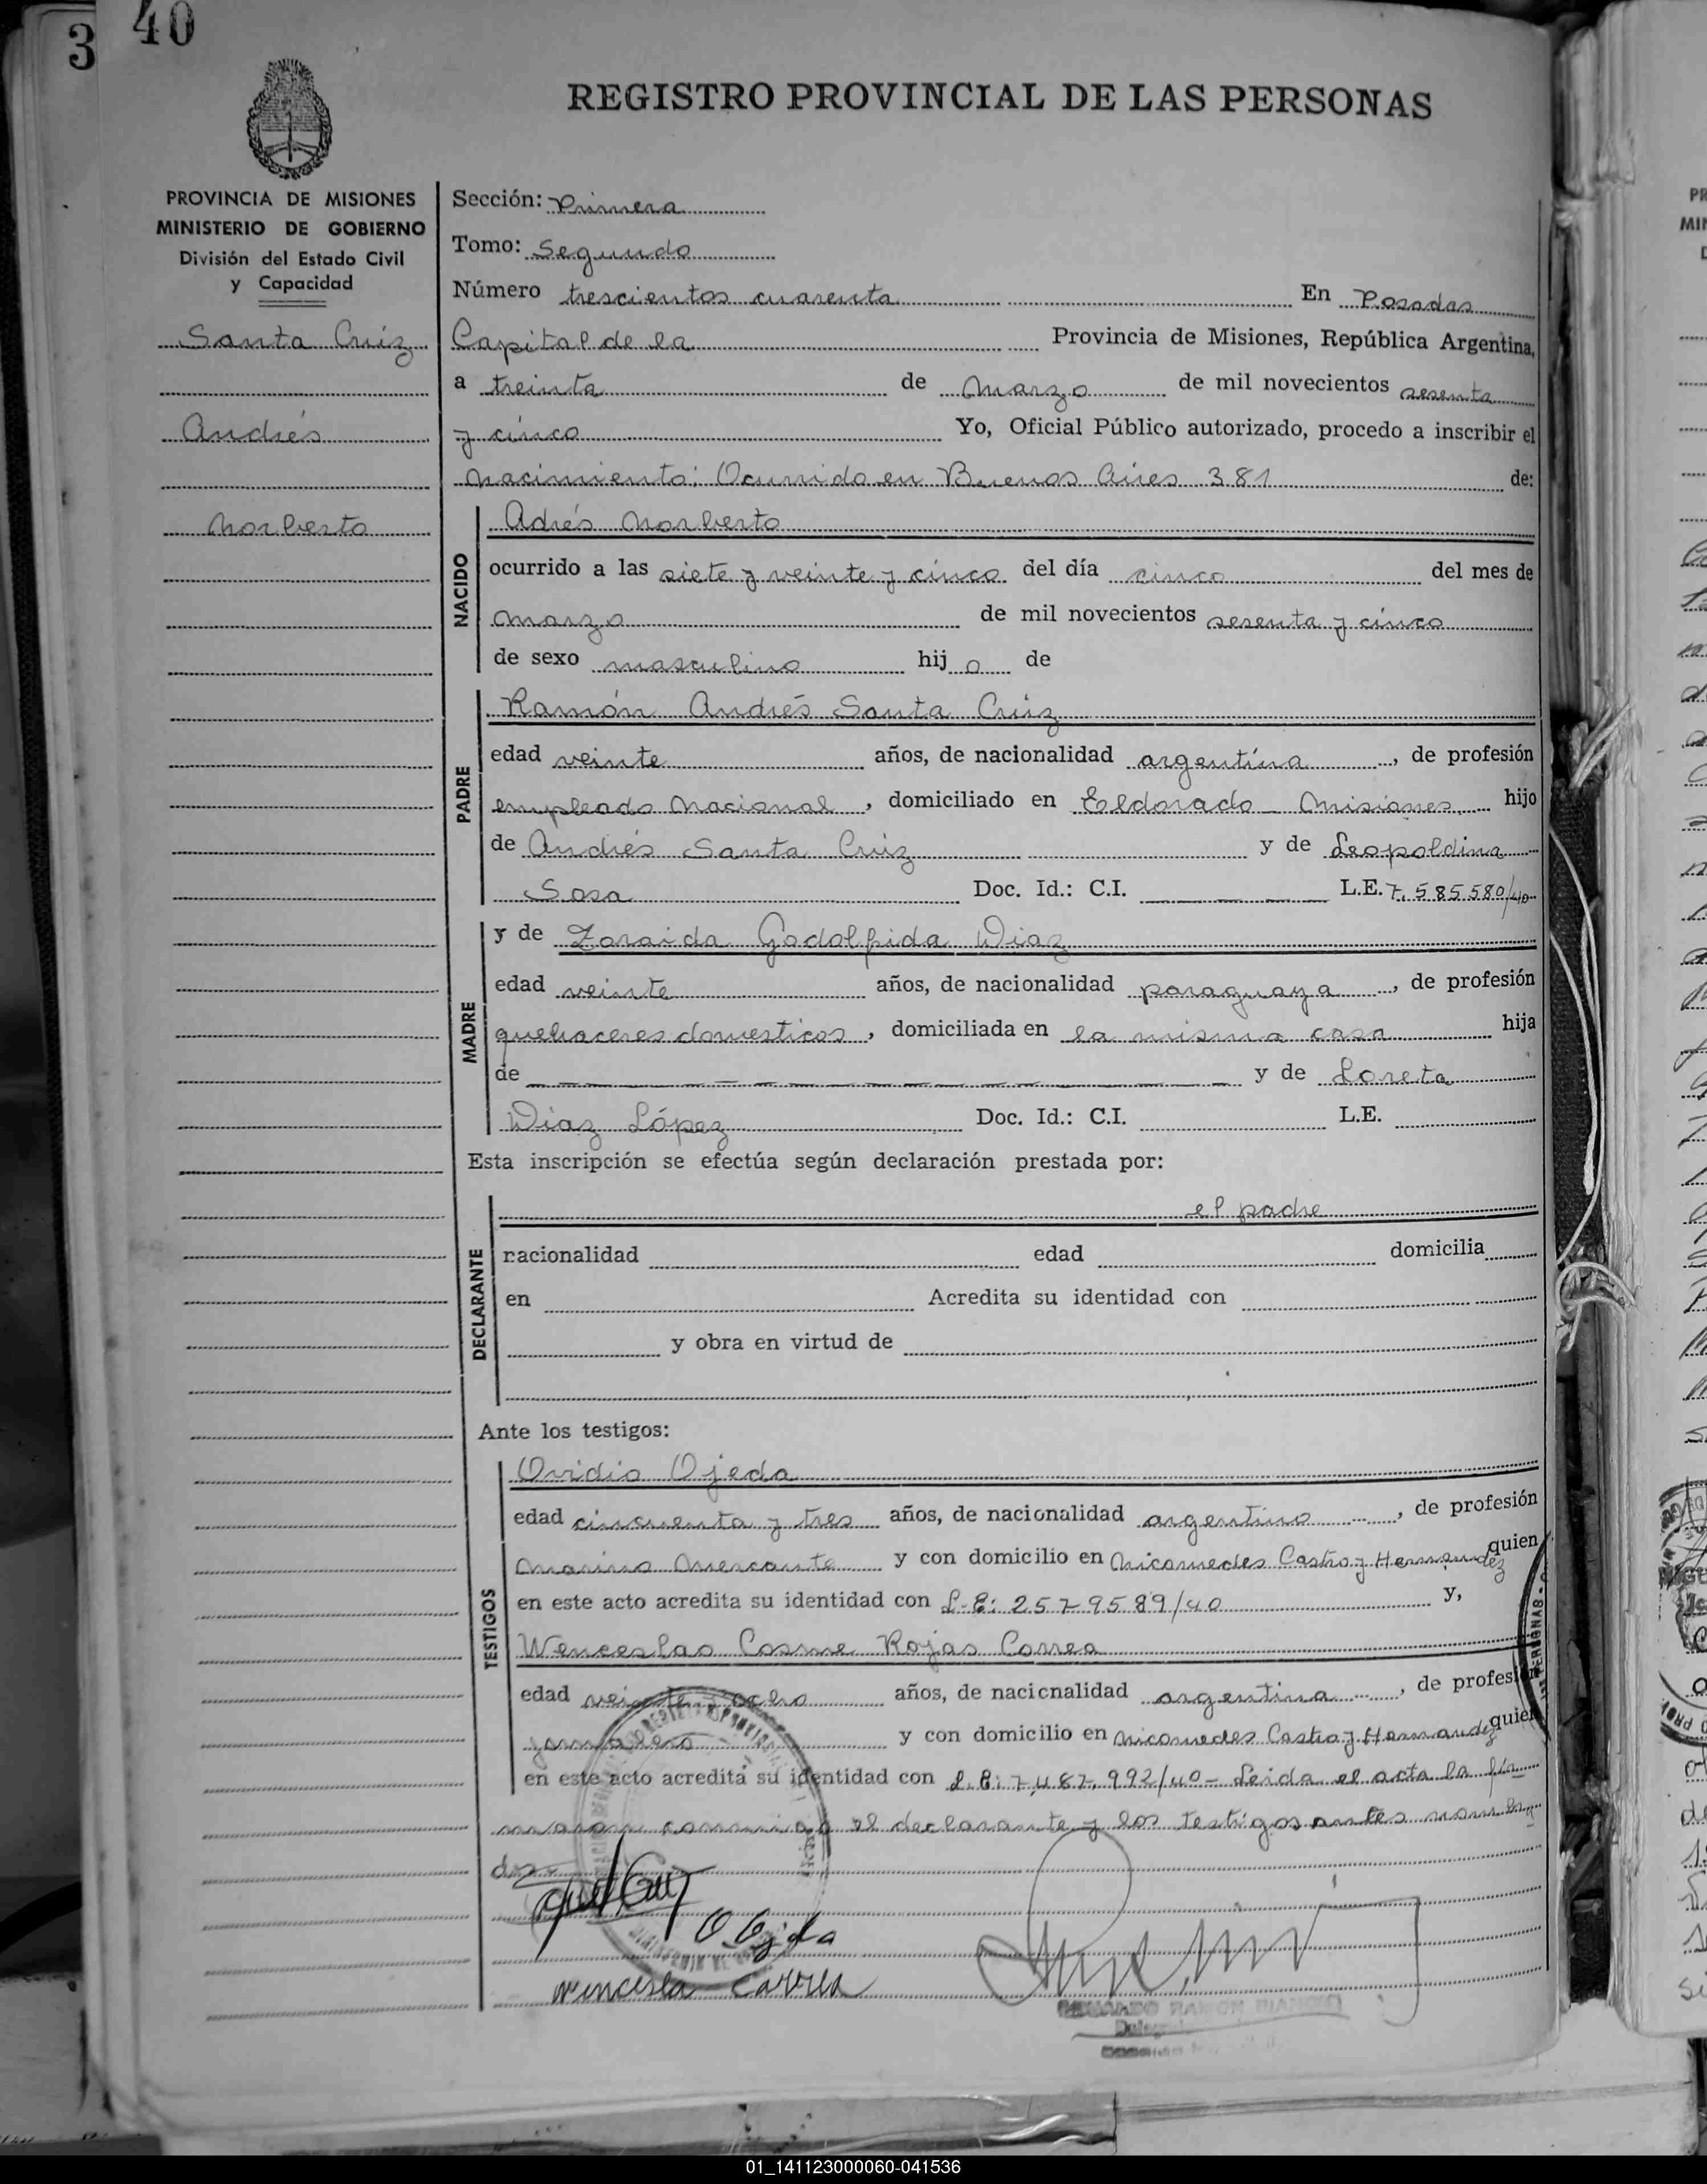 3 40
REGISTRO PROVINCIAL DE LAS PERSONAS
PROVINCIA DE MISIONES
MINISTERIO DE GOBIERNO
División del Estado Civil
y Capacidad
Santa Crúz
Andrés
Norberto
Sección: Primera
Tomo: Segundo
Número trescientos cuarenta En Posadas
Capital de la Provincia de Misiones, República Argentina,
a treinta de Marzo de mil novecientos sesenta
y cinco Yo, Oficial Público autorizado, procedo a inscribir el
Nacimiento: Ocurrido en Buenos Aires 381 de:
NACIDO
Adrés Norberto
ocurrido a las siete y veinte y cinco del día cinco del mes de
Marzo de mil novecientos sesenta y cinco
de sexo masculino hij o de
PADRE
Ramón Andrés Santa Crúz
edad veinte años, de nacionalidad argentina, de profesión
empleado Nacional, domiciliado en Eldorado Misiones hijo
de Andrés Santa Crúz y de Leopoldina
Sosa Doc. Id.: C.I. L.E. 7.585.580/40
MADRE
y de Zoraida Godolfrida Diaz
edad veinte años, de nacionalidad paraguaya, de profesión
quehaceres domesticos, domiciliada en la misma casa hija
de y de Loreta
Diaz López Doc. Id.: C.I. L.E.
Esta inscripción se efectúa según declaración prestada por:
DECLARANTE
el padre
nacionalidad edad domicilia
en Acredita su identidad con
y obra en virtud de
Ante los testigos:
TESTIGOS
Ovidio Ojeda
edad cincuenta y tres años, de nacionalidad argentino, de profesión
Marino Mercante y con domicilio en Nicomedes Castro y Hernandez quien
en este acto acredita su identidad con L.E: 2579589/40 y,
Wenceslao Cosme Rojas Correa
edad veinte y ocho años, de nacicnalidad argentina, de profesión
jornalero y con domicilio en Nicomedes Castro y Hernandez quien
en este acto acredita su identidad con L.E: 7.487.992/40- Leida el acta la fir
maron conmigo el declarante y los testigos antes nombra
dos
O Ojeda
wencesla Correa
01_141123000060-041536